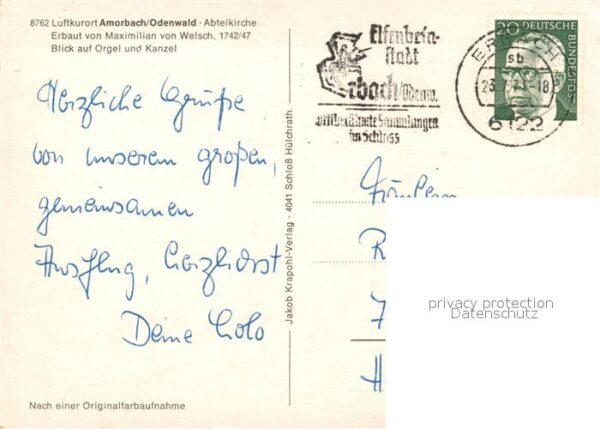 8762 Luftkurort Amorbach/Odenwald · Abteikirche
Erbaut von Maximilian von Welsch, 1742/47
Blick auf Orgel und Kanzel
Herzliche Grüße
von unserem großen,
gemeinsamen
Ausflug, herzlichst
Deine Lolo
Nach einer Originalfarbaufnahme
Jakob Krapohl-Verlag · 4041 Schloß Hülchrath
Elfenbein-
stadt
Erbach/Odenw.
weltberühmte Sammlungen
im Schloss
ERBACH
sb
23. -18
6122
20 DEUTSCHE
BUNDESPOST
Fräulein
R
7
H
privacy protection
Datenschutz